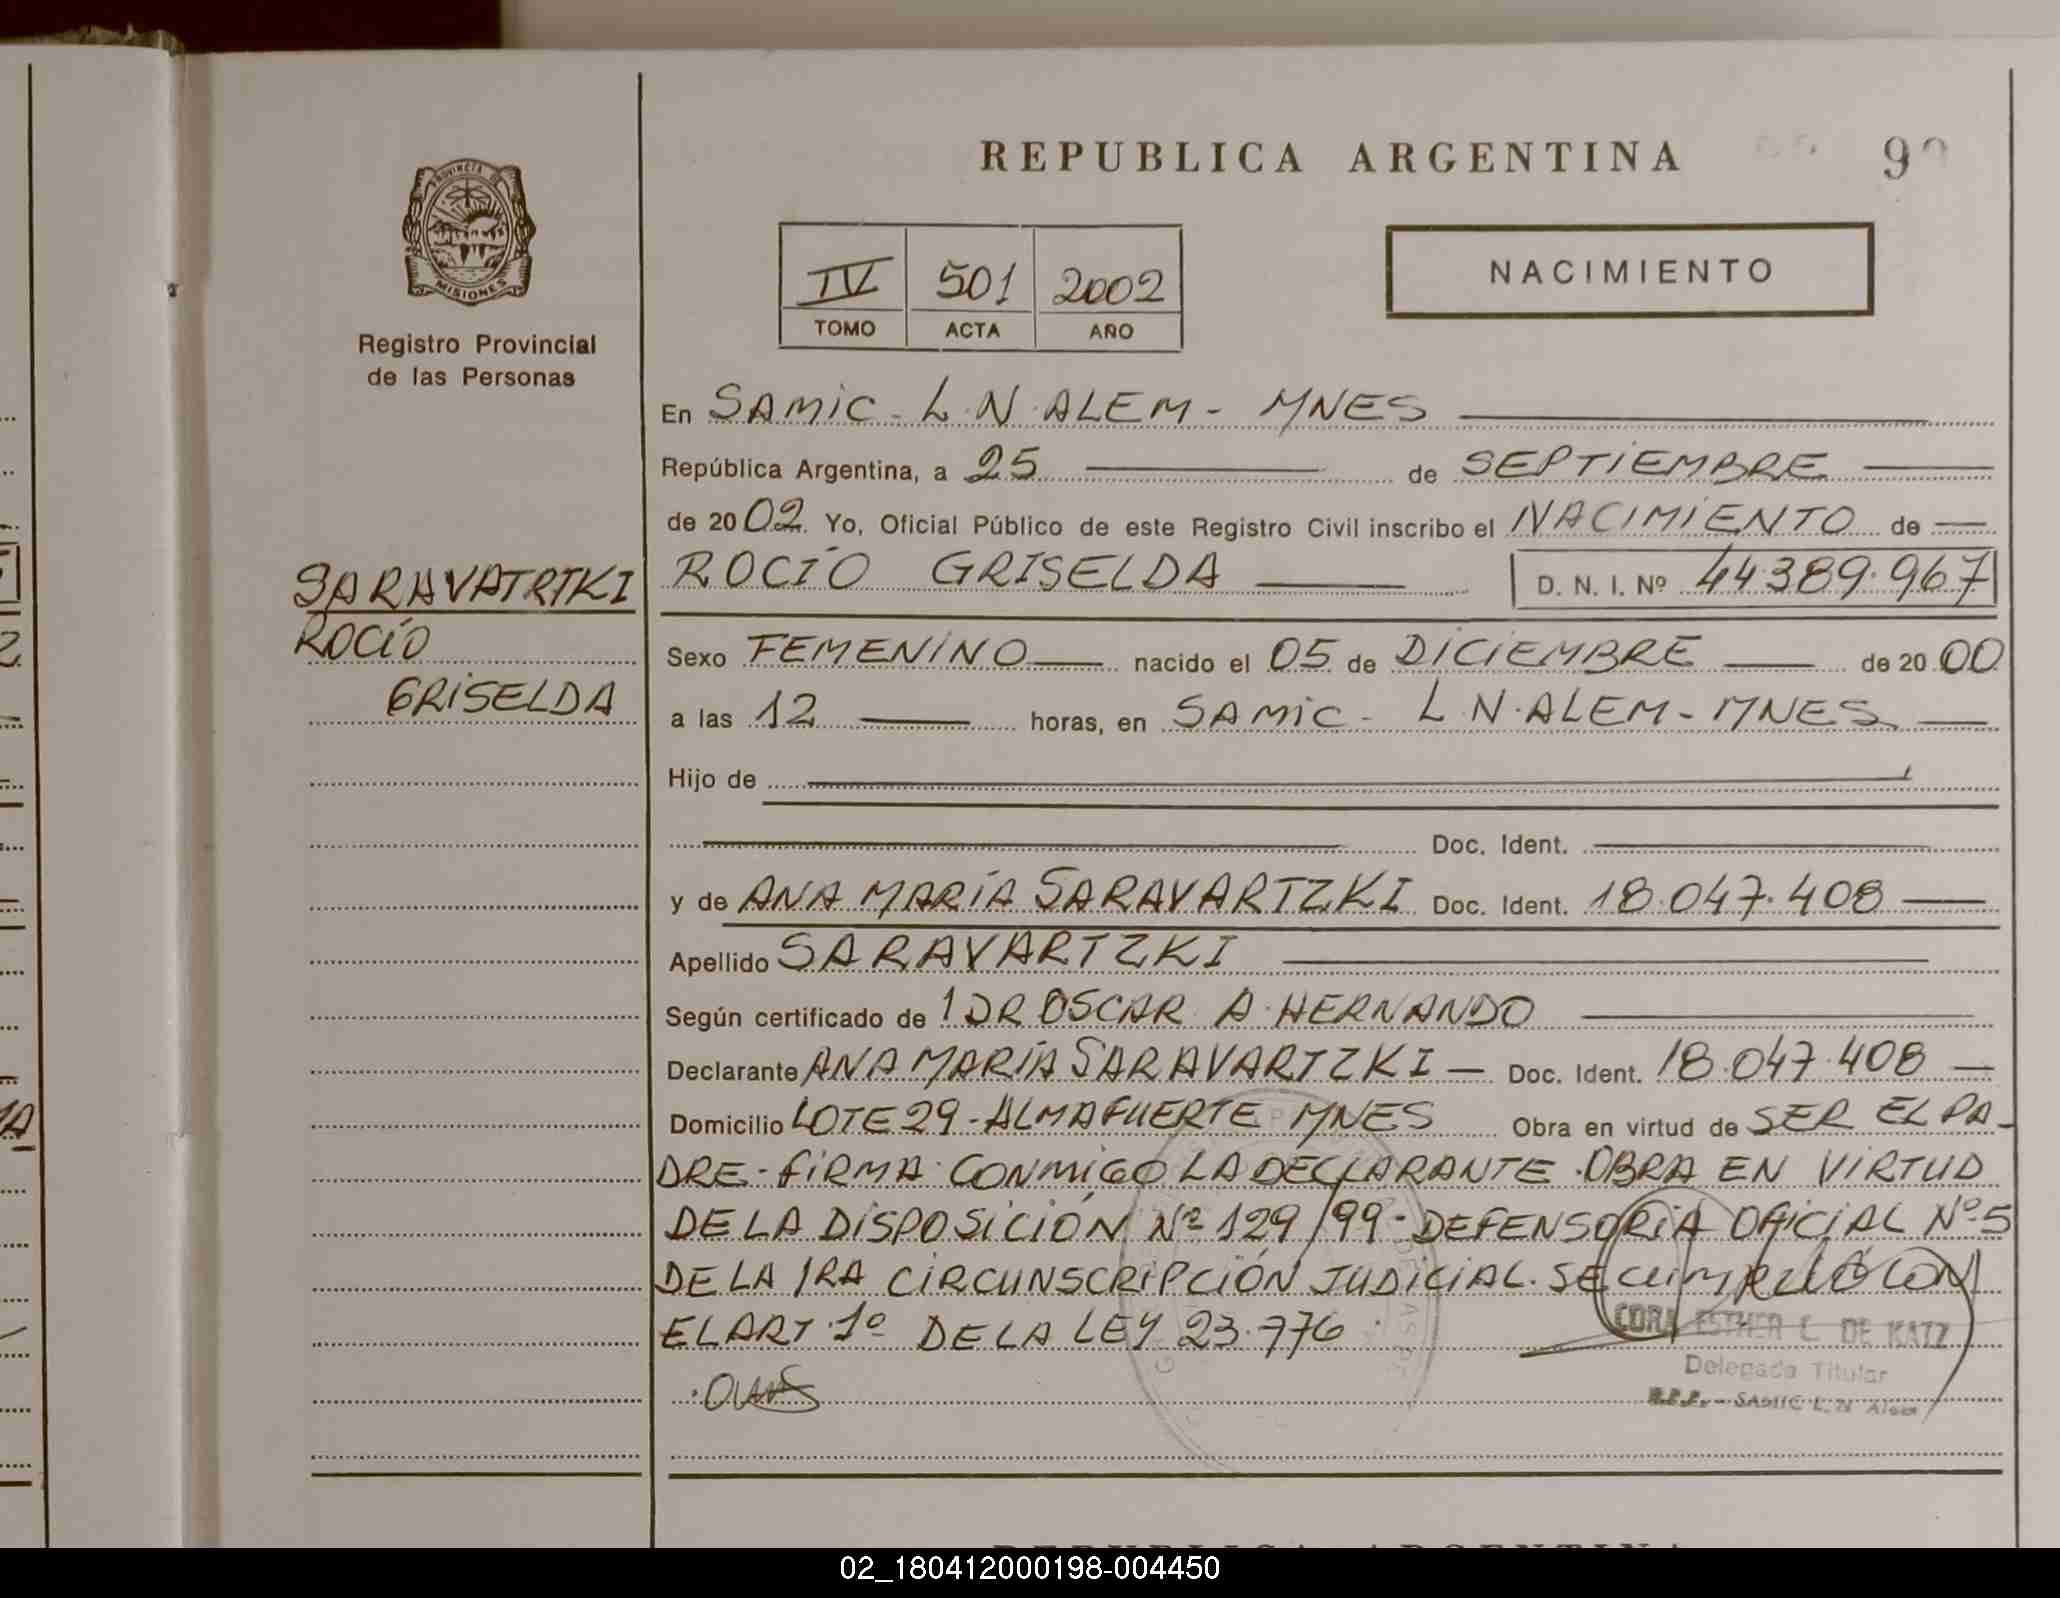 REPUBLICA ARGENTINA
NACIMIENTO
IV 501 2002
TOMO ACTA AÑO
PROVINCIA DE
MISIONES
Registro Provincial
de las Personas
SARAVATRTKI
ROCÍO
GRISELDA
En SAMIC - L.N. ALEM - MNES
República Argentina, a 25 de SEPTIEMBRE
de 2002. Yo, Oficial Público de este Registro Civil inscribo el NACIMIENTO de
ROCÍO GRISELDA D. N. I. Nº 44.389.967
Sexo FEMENINO nacido el 05 de DICIEMBRE de 2000
a las 12 horas, en SAMIC - L.N. ALEM - MNES
Hijo de
Doc. Ident.
y de ANA MARÍA SARAVARTZKI Doc. Ident. 18.047.408
Apellido SARAVARTZKI
Según certificado de 1 DR OSCAR A. HERNANDO
Declarante ANA MARÍA SARAVARTZKI - Doc. Ident. 18.047.408
Domicilio LOTE 29 - ALMAFUERTE MNES Obra en virtud de SER EL PA-
DRE. FIRMA CONMIGO LA DECLARANTE. OBRA EN VIRTUD
DE LA DISPOSICIÓN Nº 129/99 - DEFENSORÍA OFICIAL Nº 5
DE LA 1RA CIRCUNSCRIPCIÓN JUDICIAL. SE CUMPLIÓ CON
EL ART. 1º DE LA LEY 23.776.
CORA ESTHER C. DE KATZ
Delegada Titular
R.P.P. - SAMIC L.N Alem
02_180412000198-004450